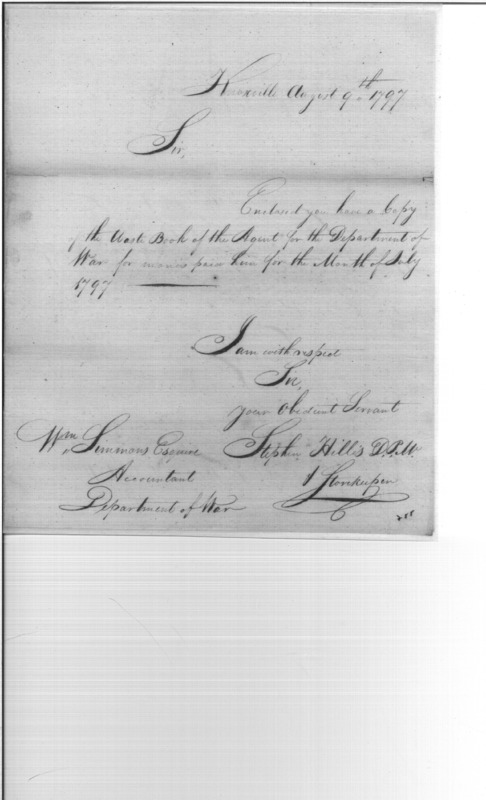 Knoxville August 9th 1797
Sir,
Enclosed you have a Copy
of the Waste Book of the Agent for the Department of
War for monies paid him for the Month of July
1797
I am with respect
Sir,
your Obedient Servant
Wm Simmons Esquire
Stephen Hillis D.P.M.
Accountant
& Storekeeper
Department of War